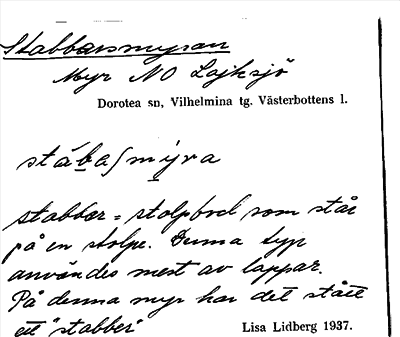 Stabbarsmyran
Myr NO Lajksjö
Dorotea sn, Vilhelmina tg. Västerbottens l.
stábaʃmýra
stabbar = stolpbod som står
på en stolpe. Denna typ
användes mest av lappar.
På denna myr har det stått
ett "stabber"
Lisa Lidberg 1937.